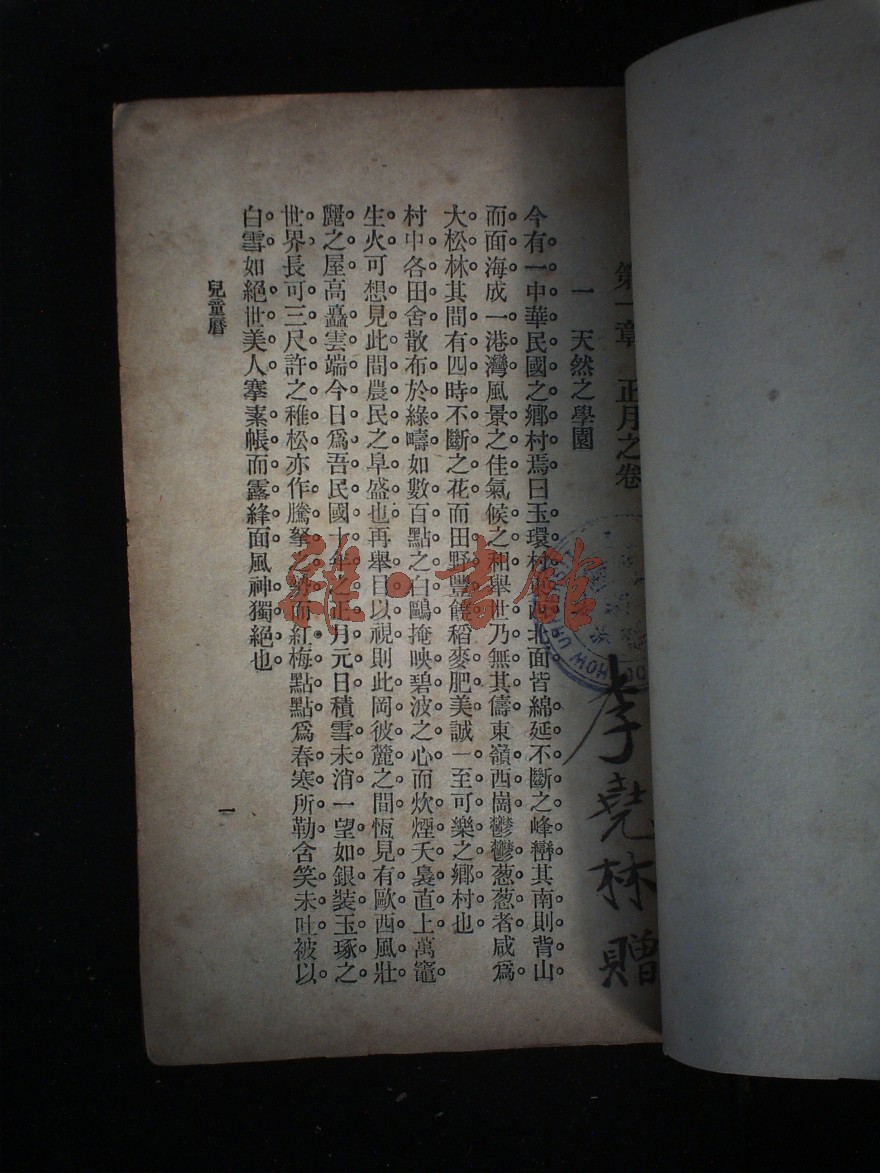 第一章　正月之卷
一　天然之學園
今有一中華民國之鄉村焉曰玉環村西北面皆綿延不斷之峰巒其南則背山
而面海成一港灣風景之佳氣候之和舉世乃無其儔東嶺西崗鬱鬱葱葱者咸爲
大松林其間有四時不斷之花而田野豐饒稻麥肥美誠一至可樂之鄉村也
村中各田舍散布於綠疇如數百點之白鷗掩映碧波之心而炊煙夭裊直上萬竈
生火可想見此間農民之阜盛也再舉目以視則此岡彼麓之間恆見有歐西風壯
麗之屋高矗雲端今日爲吾民國十年之正月元日積雪未消一望如銀裝玉琢之
世界長可三尺許之稚松亦作騰拏而紅梅點點爲春寒所勒含笑未吐被以
白雪如絕世美人搴素帳而露絳面風神獨絕也
兒童曆
一
李堯林贈
雜·書館
HOW UN